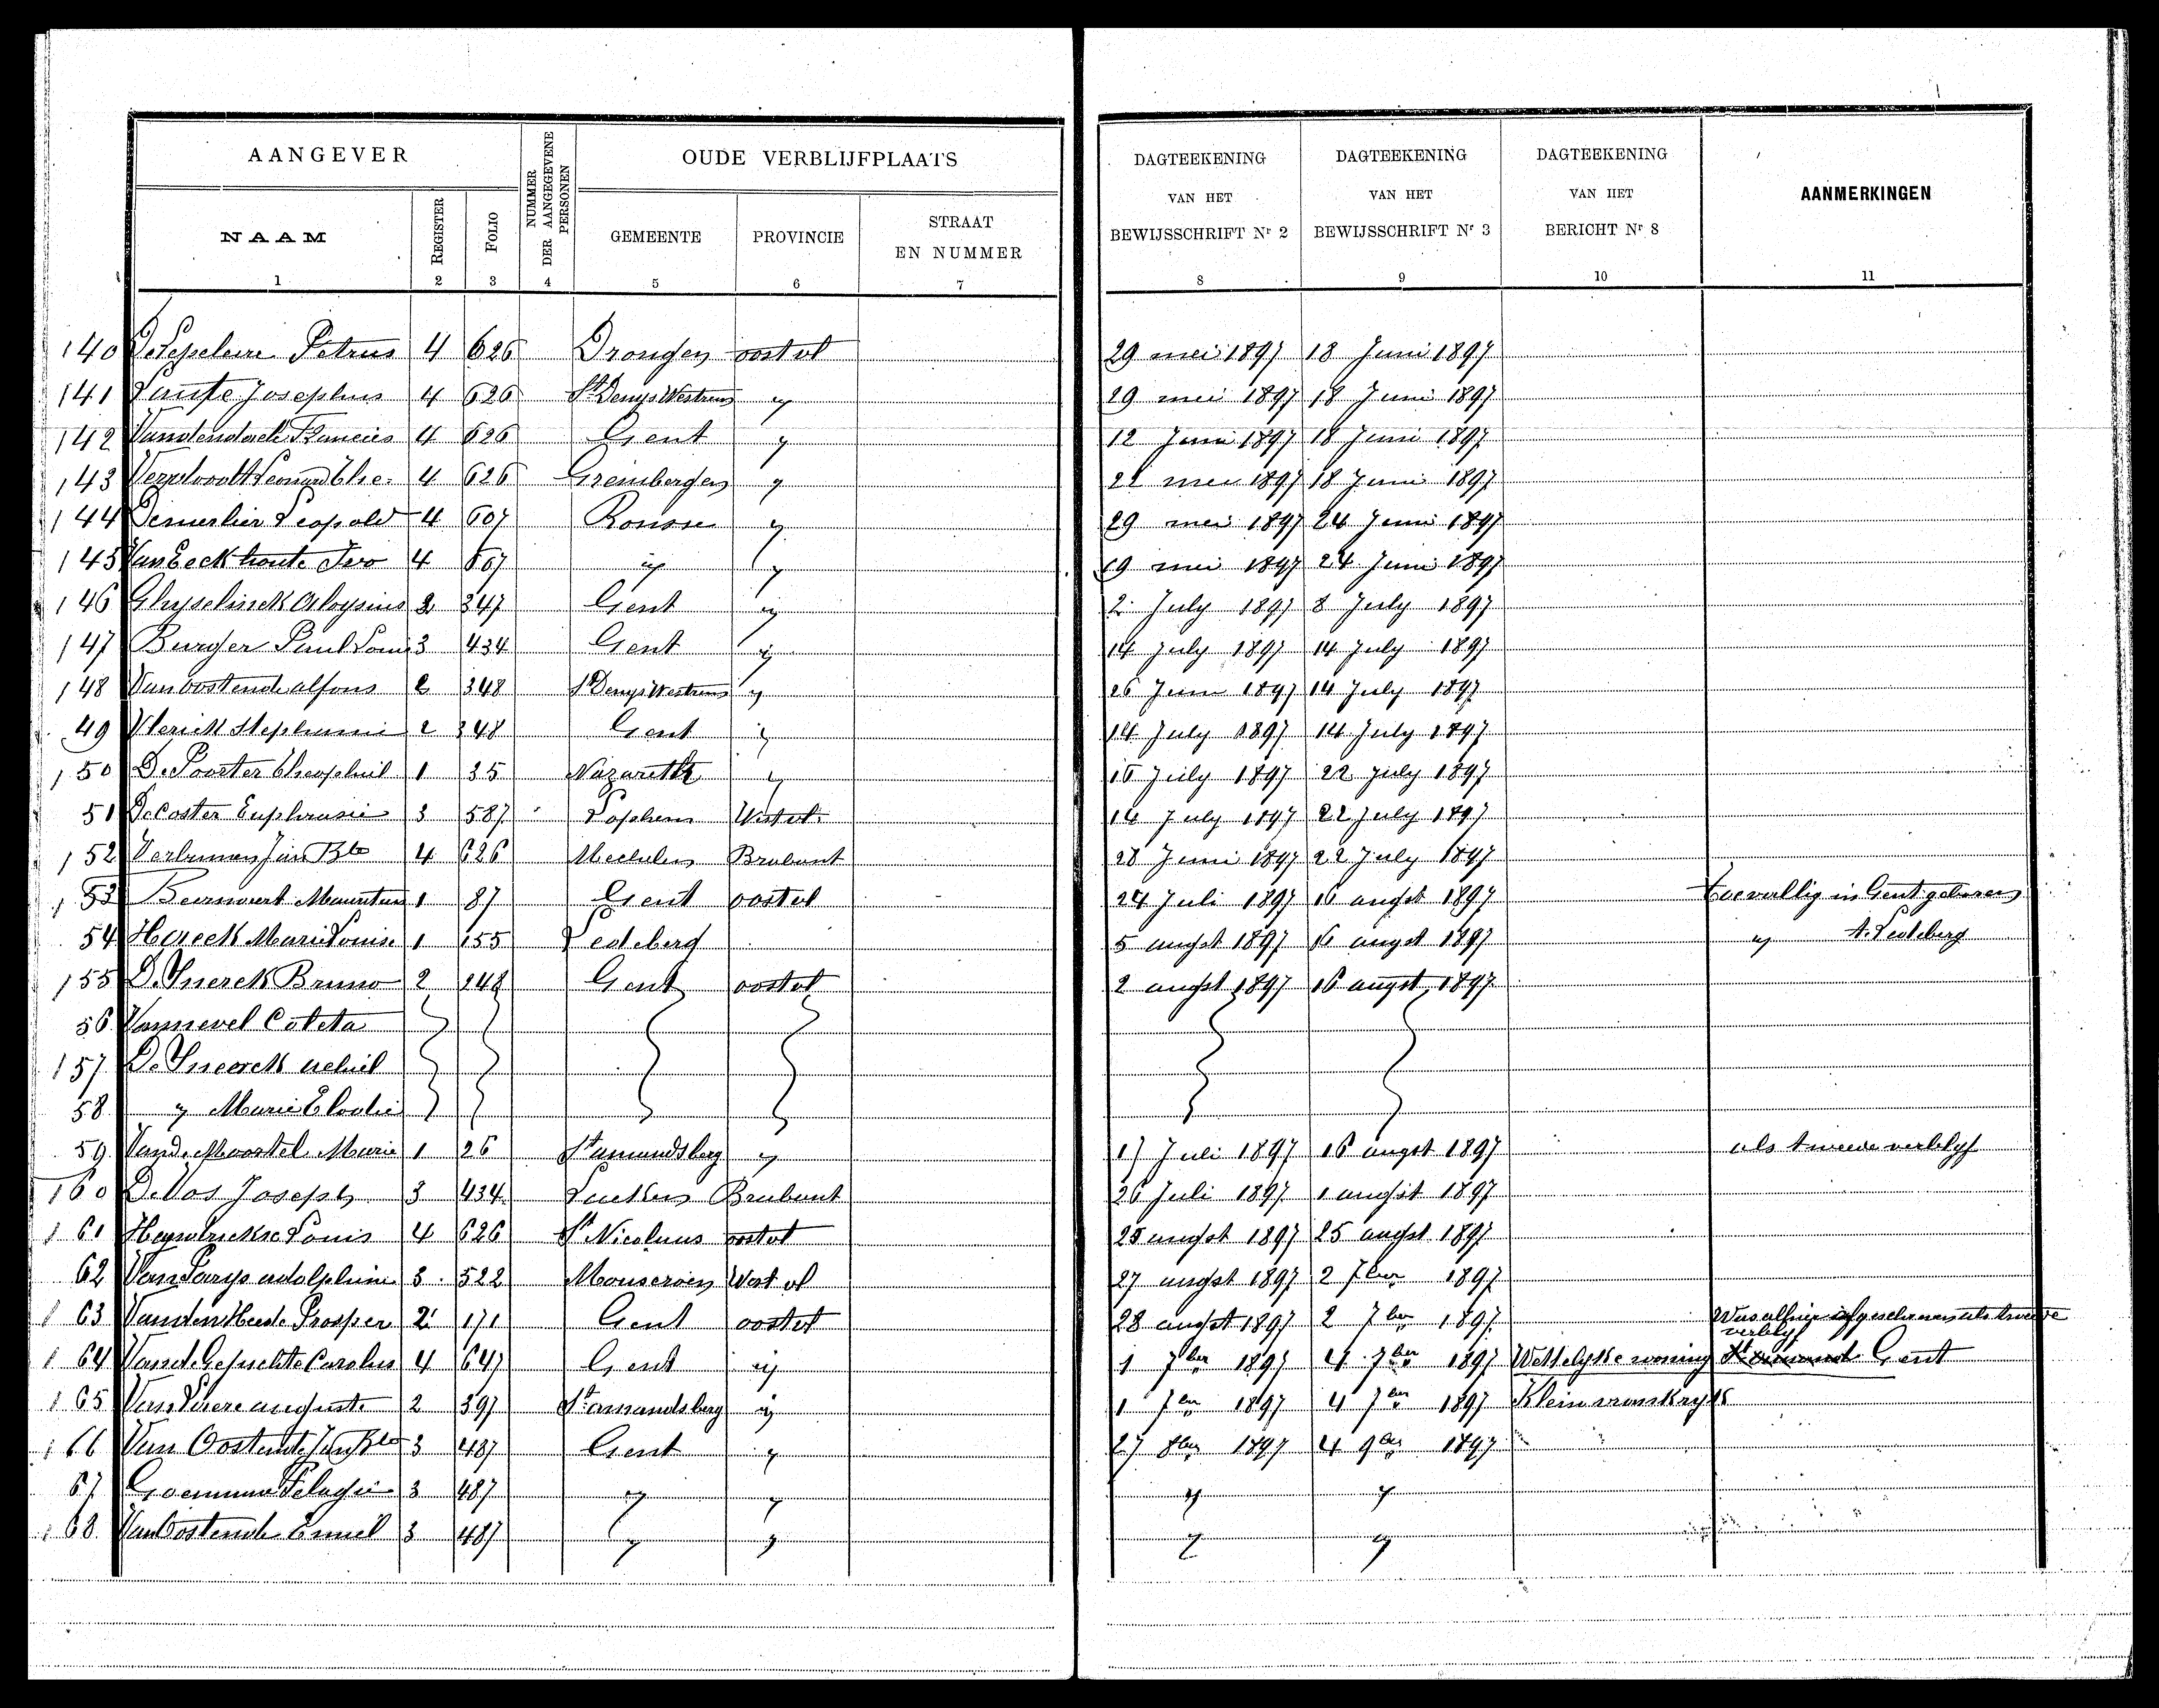 AANGEVER
NUMMER DER AANGEGEVENE PERSONEN
OUDE VERBLIJFPLAATS
DAGTEEKENING VAN HET BEWIJSSCHRIFT Nr 2
DAGTEEKENING VAN HET BEWIJSSCHRIFT Nr 3
DAGTEEKENING VAN HET BERICHT Nr 8
AANMERKINGEN
NAAM REGISTER FOLIO GEMEENTE PROVINCIE STRAAT EN NUMMER
1 2 3 4 5 6 7 8 9 10 11
140 Petrus 4 626 Drongen oostvl 29 mei 1897 18 Juni 1897
141 Josephus 4 626 St Denys Westrem " 29 mei 1897 18 Juni 1897
142 Francies 4 626 Gent " 12 Juni 1897 18 Juni 1897
143 4 626 Greimbergen " 22 mei 1897 18 Juni 1897
144 Leopold 4 607 Ronsse " 29 mei 1897 24 Juni 1897
145 Van Eeckhoute Ivo 4 607 " " 19 mei 1897 24 Juni 1897
146 Ghyselinck Aloysius 2 347 Gent " 2 July 1897 8 July 1897
147 Burger Paul Louis 3 434 Gent " 14 July 1897 14 July 1897
148 Van oostende alfons 2 348 St Denys Westrem " 26 Juni 1897 14 July 1897
49 Vlerick Stephanie 2 348 Gent " 14 July 1897 14 July 1897
150 De Poorter Theophiel 1 35 Nazareth " 16 July 1897 22 July 1897
51 De Coster Euphrasie 3 587 Lophem Westvl. 14 July 1897 22 July 1897
152 Jan Bte 4 626 Mechelen Brabant 28 Juni 1897 22 July 1897
153 1 87 Gent oostvl 24 Juli 1897 16 augst 1897 toevallig in Gent geboren
54 Marie Louise 1 155 Ledeberg 5 augst 1897 16 augst 1897 " Ledeberg
155 De Snerck Bruno 2 248 Gent oostvl 2 augst 1897 16 augst 1897
56 Vannevel Coleta
157 De Sneerck achiel
58 " Marie Elodie
59 Vand. Moortel Marie 1 26 St amandsberg " 17 Juli 1897 16 augst 1897 als tweede verblyf
160 De Vos Joseph 3 434 Laeken Brabant 26 Juli 1897 1 augst 1897
161 Heyndrickse Louis 4 626 St Nicolaas oostvl 25 augst 1897 25 augst 1897
62 Van Parys adolphine 3 522 Mouscroen West vl 27 augst 1897 2 7ber 1897
163 Vanden Heede Prosper 2 171 Gent oostvl 28 augst 1897 2 7ber 1897 Was alhier als tweede
verblyf
164 Vand. Gehuchte Carolus 4 647 Gent " 1 7ber 1897 4 7ber 1897 Wettelyke woning Gent
165 auguste 2 397 St amandsberg " 1 7ber 1897 4 7ber 1897 Klein vrankryk
166 Van Oostende Jan Bte 3 487 Gent " 27 8ber 1897 4 9ber 1897
67 Pelagie 3 487 " " " "
168 Van Oostende Emiel 3 487 " " " "